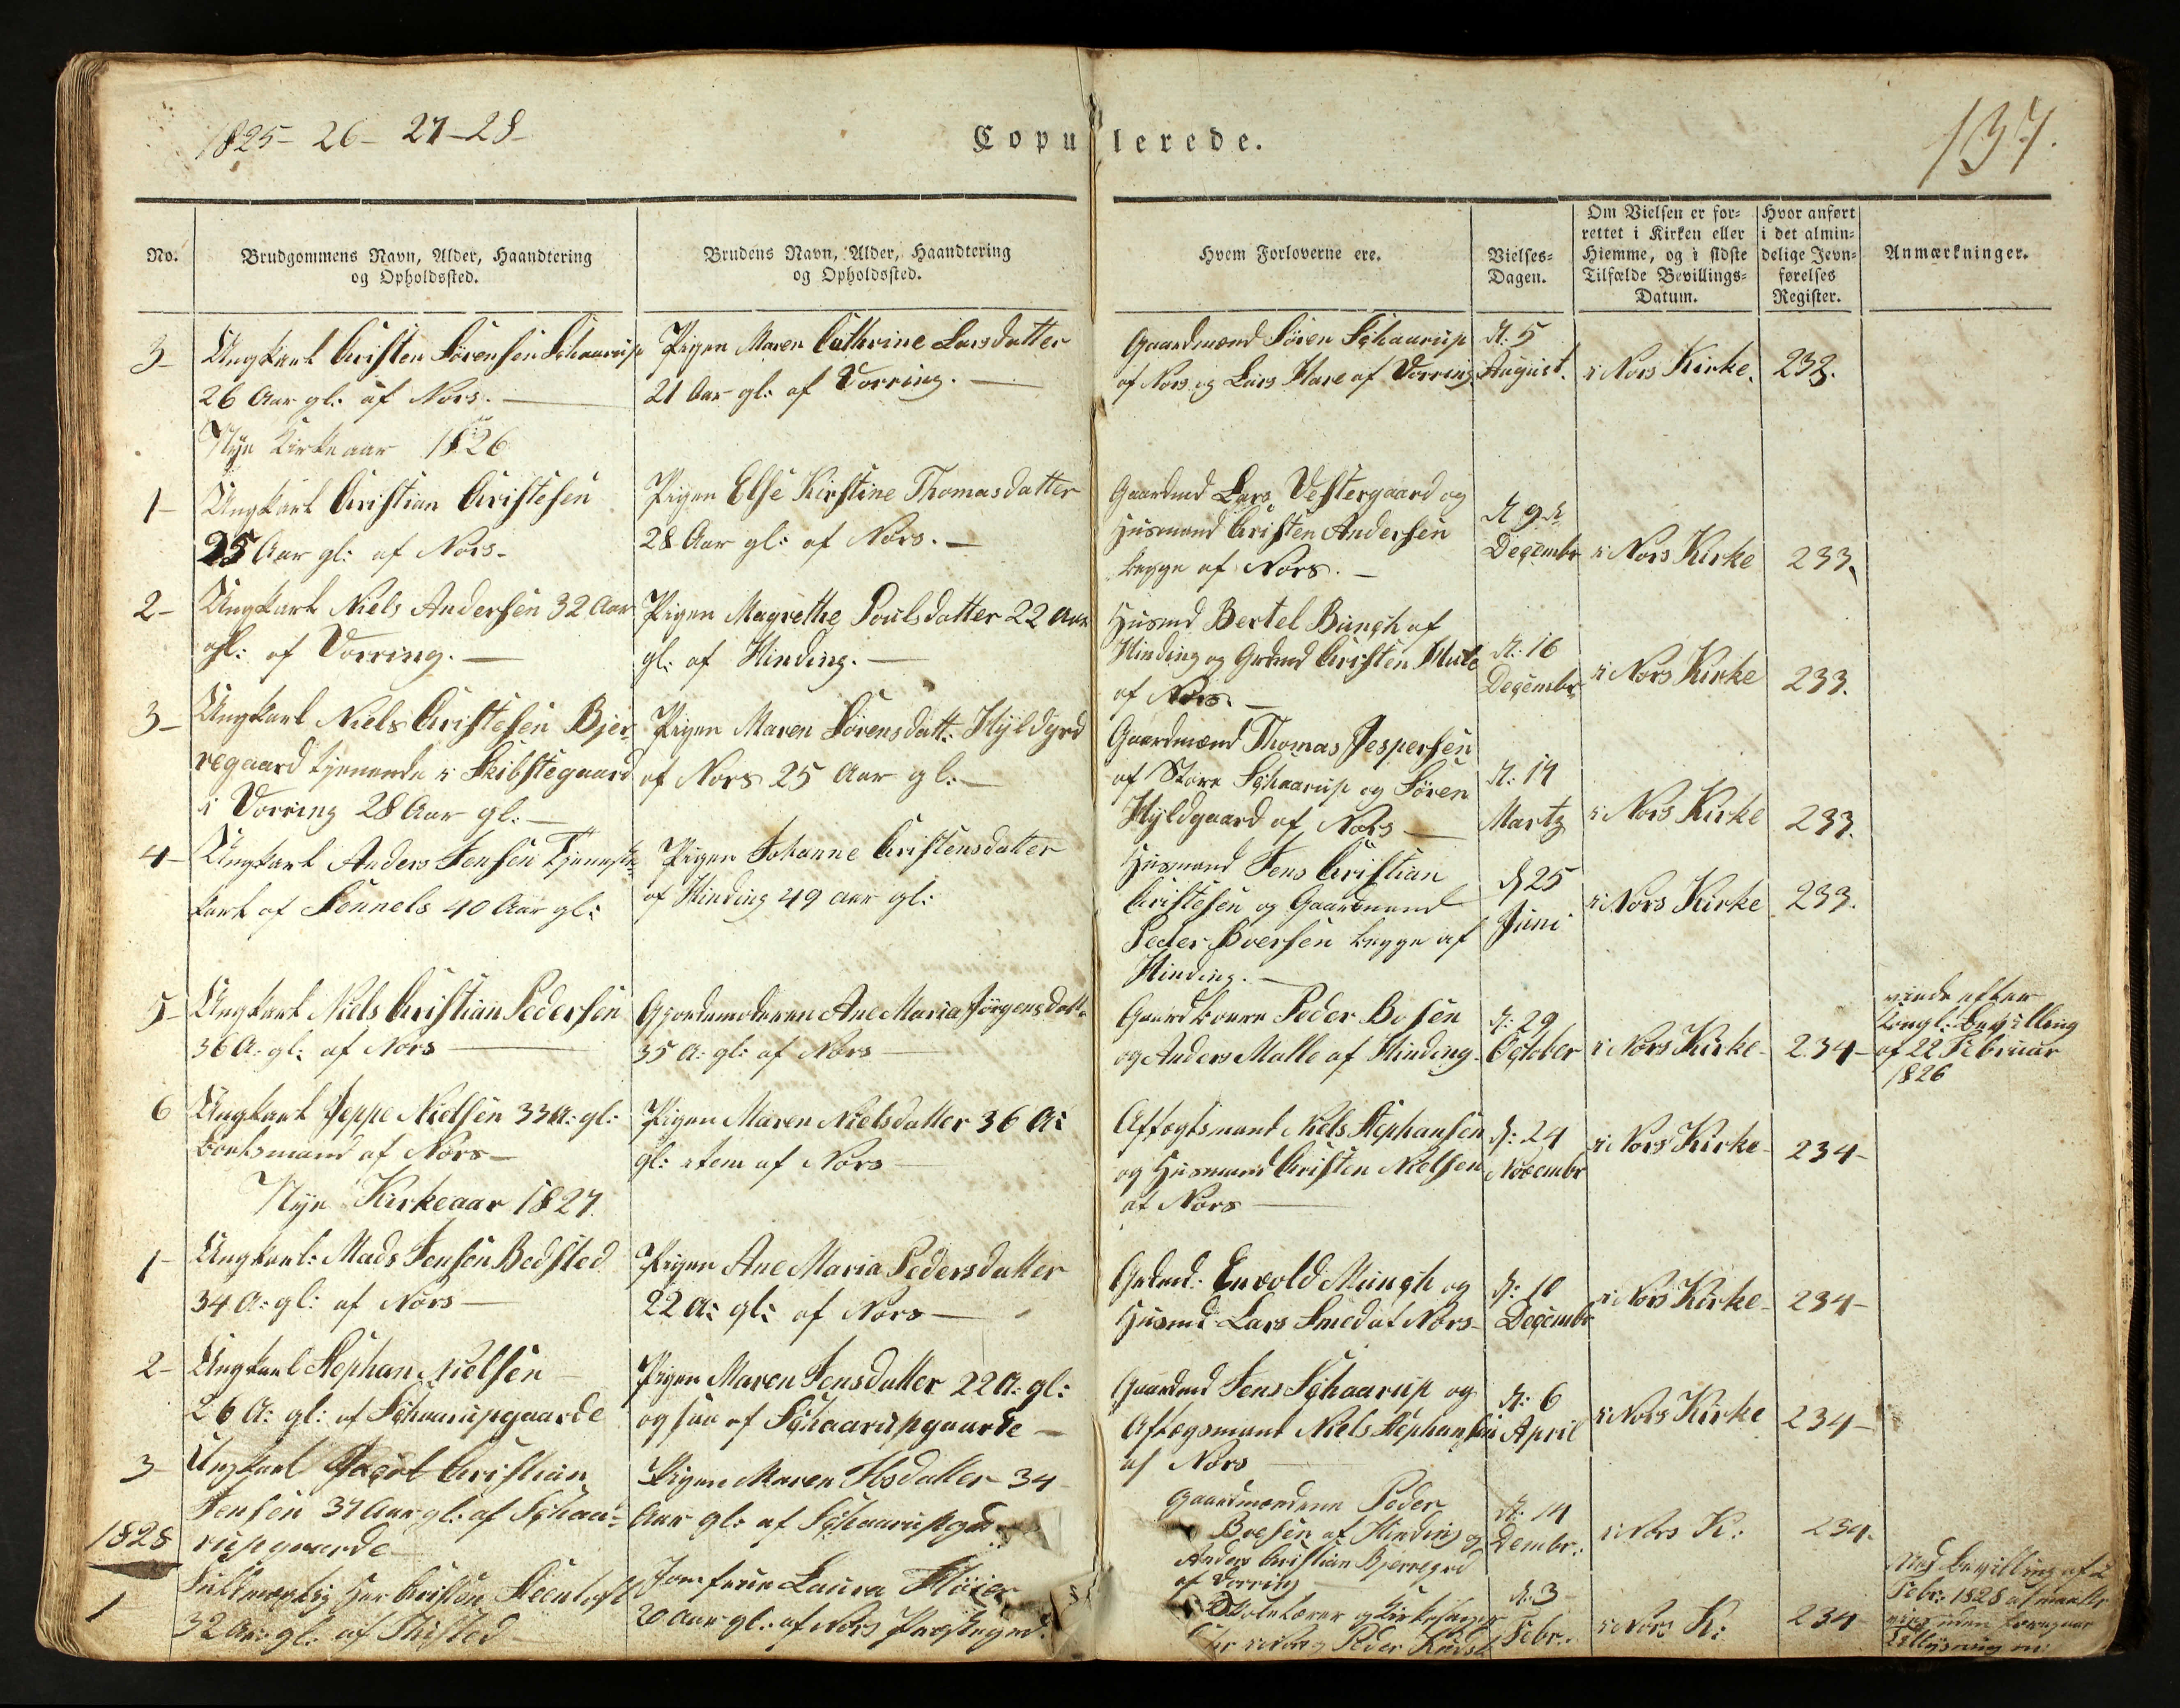 1825 - 26 - 27 - 28 -
Copulerede.
137.
No.
Brudgommens Navn, Alder, Haandtering
og Opholdssted.
Brudens Navn, Alder, Haandtering
og Opholdssted.
Hvem Forloverne ere.
Vielses-
Dagen.
Om Vielsen er for-
rettet i Kirken eller
Hiemme, og i sidste
Tilfælde Bevillings-
Datum.
Hvor anført
i det almin-
delige Jevn-
førelses
Register.
Anmærkninger.
3-
Ungkarl Christen Sörensen Schaarup
26 Aar gl: af Nors. —
Pigen Maren Cathrine Larsdatter
21 Aar gl: af Vorring. —
Gaardmænd Sören Schaarup
af Nors og Lars Hare af Vorring
d: 5
August.
i Nors Kirke.
232.
Nye Kirkeaar 1826
1-
Ungkarl Christian Christesen
25 Aar gl: af Nors-
Pigen Else Kirstine Thomasdatter
28 Aar gl: af Nors. —
Gaardmd Lars Vestergaard og
Husmand Christen Andersen
begge af Nors. —
d 9de
Decembr
i Nors Kirke
233.
2-
Ungkarl Niels Andersen 32 Aar
gl: af Vorring. —
Pigen Magrethe Poulsdatter 22 Aar
gl: af Hinding. —
Husmd Bertel Bunch af
Hinding og Grdmd Christen
af Nors —
d: 16
Decembr
i Nors Kirke
233.
3-
Ungkarl Niels Christesen Bjer-
regaard tjenende i Skibstegaard
i Vorring 28 Aar gl: —
Pigen Maren Sörensdatt: Hyldgrd
af Nors 25 Aar gl: —
Gaardmænd Thomas Jespersen
af Store Schaarup og Sören
Hyldgaard af Nors —
d: 14
Martz
i Nors Kirke
233.
4-
Ungkarl Anders Jensen Tjeneste-
karl af Sennels 40 Aar gl:
Pigen Johanne Christensdatter
af Hinding 49 aar gl:
Husmand Jens Christian
Christesen og Gaardmand
Peder Boersen begge af
Hinding. —
d 25
Juni
i Nors Kirke
233.
5-
Ungkarl Niels Christian Pedersen
36 A: gl: af Nors —
Gjordemoderen Ane Maria Jörgensdatt.
35 A: gl: af Nors —
Gaardboere Peder Bosen
og Anders Malle af Hinding-
d: 29
October
i Nors Kirke-
234-
viede efter
Kongl: Bevilling
af 22 Februar
1826
6
Ungkarl Jeppe Nielsen 33 A: gl:
Boelsmand af Nors —
Pigen Maren Nielsdatter 36 A:
gl: item af Nors —
Aftægtsmand Niels Stephansen
og Husmand Christen Nielsen
af Nors —
d: 24
Novembr
i Nors Kirke-
234-
Nye Kirkeaar 1827.
1-
Ungkarl: Mads Jensen Bedsted
34 A: gl: af Nors —
Pigen Ane Maria Pedersdatter
22 A: gl: af Nors —
Grdmd: Envold Munch og
Husmd Lars Smed af Nors-
d: 10
Decembr
i Nors Kirke-
234-
2-
Ungkarl Stephan Nielsen
26 A: gl: af Schaarupgaarde
Pigen Maren Jensdatter 22 A: gl:
ogsaa af Schaarupgaarde —
Gaardmd Jens Schaarup og
Aftægsmand Niels Stephansen
af Nors —
d: 6
April
i Nors Kirke
234-
3-
Ungkarl Christian
Jensen 37 Aar gl: af Schaa-
rupgaarde
Pigen Maren Ibsdatter 34
Aar gl: af Schaarupgrd.
Gaardmændene Peder
Boesen af Hinding og
Anders Christian Bjerregrd
af Vorring
d: 14
Dembr:
i Nors K:
234.
1828
1
Fuldmægtig Herr Christen Steentoft
32 Aar gl: af Thisted —
Jomfrue Laura
20 Aar gl: af Nors Præstegrd.
Skolelærer og Kirkesanger
Peder
d: 3
Febr:
i Nors K:
234
Med Bevilling af 2
Febr: 1828 at maatte
vies uden foregaaende
Tillysning